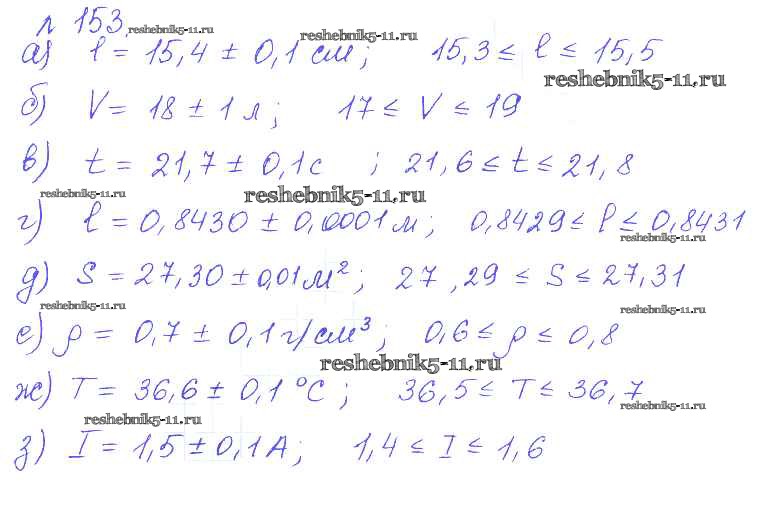 № 153. reshebnik5-11.ru reshebnik5-11.ru
а) l = 15,4 ± 0,1 см; 15,3 ≤ l ≤ 15,5
reshebnik5-11.ru
б) V = 18 ± 1 л; 17 ≤ V ≤ 19
в) t = 21,7 ± 0,1 с ; 21,6 ≤ t ≤ 21,8
reshebnik5-11.ru reshebnik5-11.ru
г) l = 0,8430 ± 0,0001 м; 0,8429 ≤ l ≤ 0,8431
reshebnik5-11.ru
д) S = 27,30 ± 0,01 м²; 27,29 ≤ S ≤ 27,31
reshebnik5-11.ru reshebnik5-11.ru
е) ρ = 0,7 ± 0,1 г/см³; 0,6 ≤ ρ ≤ 0,8
reshebnik5-11.ru
ж) T = 36,6 ± 0,1 °C; 36,5 ≤ T ≤ 36,7
reshebnik5-11.ru reshebnik5-11.ru
з) I = 1,5 ± 0,1 А; 1,4 ≤ I ≤ 1,6